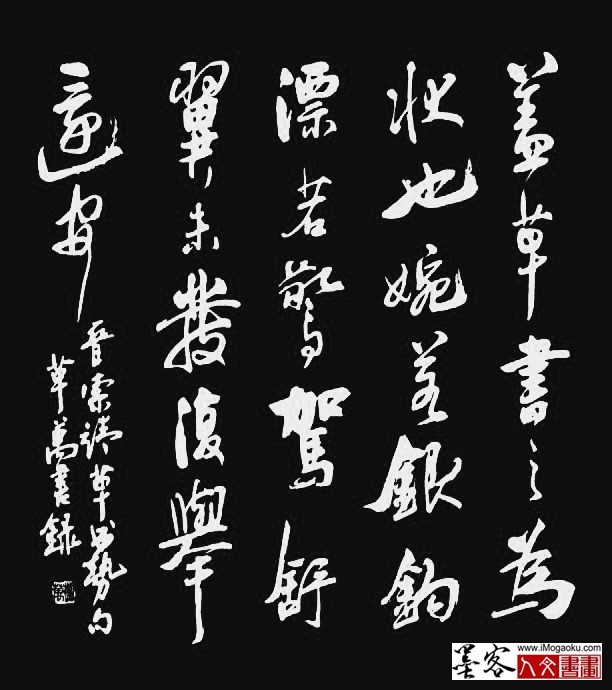 蓋草書之為
狀也婉若銀鉤
漂若驚駕舒
翼未發復舉
安
晉索靖草書勢句
草萬書錄
www.iMogaoku.com
墨客
人文書畫